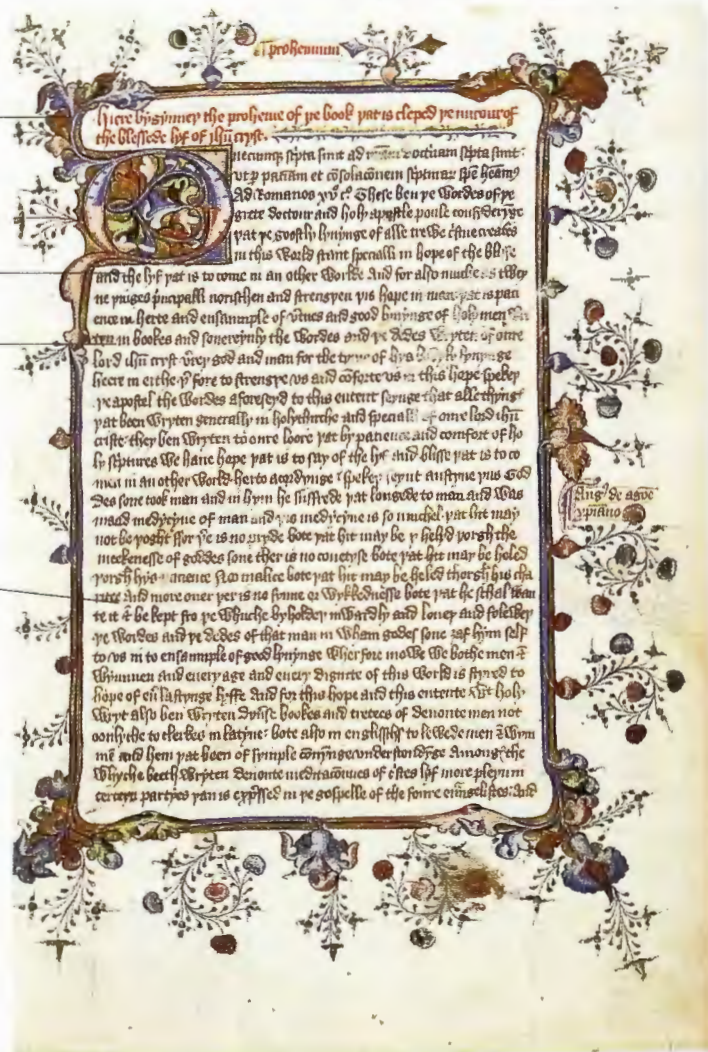 prohemium
Here bygynneþ the proheme of þe book þat is cleped þe mirour of
the blessede lyf of ihū cryst.
Quecumq; scpta sunt ad nram doctrinam scpta sunt:
vt p pacian et cōsolacōnem scpturaꝝ spē heamꝰ
Ad Romanos xvͦ cͦ. These ben þe wordes of þe
grete doctour and holy apostle poule considerȳge
þat þe goostly lyuynge of alle trewe cristene creatures
in this world stant specialli in hope of the blysse
and the lyf þat is to come in an other worlde And for also muche as twey
ne þinges pncipalli norischen and strengþen þis hope in man þat is paci
ence in herte and ensaumple of vtues and good lyuynge of holy men wri
ten in bookes and souereynly the wordes and þe dedes wryten of oure
lord ihū cryst verey god and man for the tyme of hys bodyly lyuynge
heere in erthe þerfore to strengþe vs and cōforte vs in this hope spekeþ
þe apostel the wordes aforeseyd to this entent seynge that alle thynges
þat been wryten generally in holychirche and speciali of oure lord ihū
criste they ben wryten to oure loore þat by pacience and comfort of ho
ly scptures we haue hope þat is to say of the lyf and blisse þat is to co
men in an other world. herto acordynge spekeþ seynt austyne þus God
des sone took man and in hym he suffrede þat longede to man and was
maad medycyne of man and þis medycyne is so muchel þat hit may
not be þoght ffor þer is no pryde bote þat hit may be heled þorgh the
meekenesse of goddes sone ther is no coueityse bote þat hit may be heled
þorgh hys pacience no malice bote þat hit may be heled thorgh his cha
ritee And more ouer þer is no synne or wykkednesse bote þat he schal wan
te it & be kept fro þe whuche byholdeþ inwardly and loueþ and foleweþ
þe wordes and þe dedes of that man in wham godes sone ȝaf hym self
to vs in to ensaumple of good lyuynge wherfore mowe we bothe men &
wymmen and euery age and euery dignite of this world is styred to
hope of eūlastynge lyffe And for this hope and this entente wt holy
wryt also ben wryten dyuse bookes and tretees of deuoute men not
oonlyche to clerkes in latyne: bote also in englissħ to lewede men & wym
mē and hem þat been of symple cōnynge vnderstondȳge Among the
whyche beeth wryten deuoute meditaciones of cristes lyf more pleyn in
certeyn partyes þan is expssed in þe gospelle of the foure euāgelistes: And
Augꝰ de agōe
xpiano